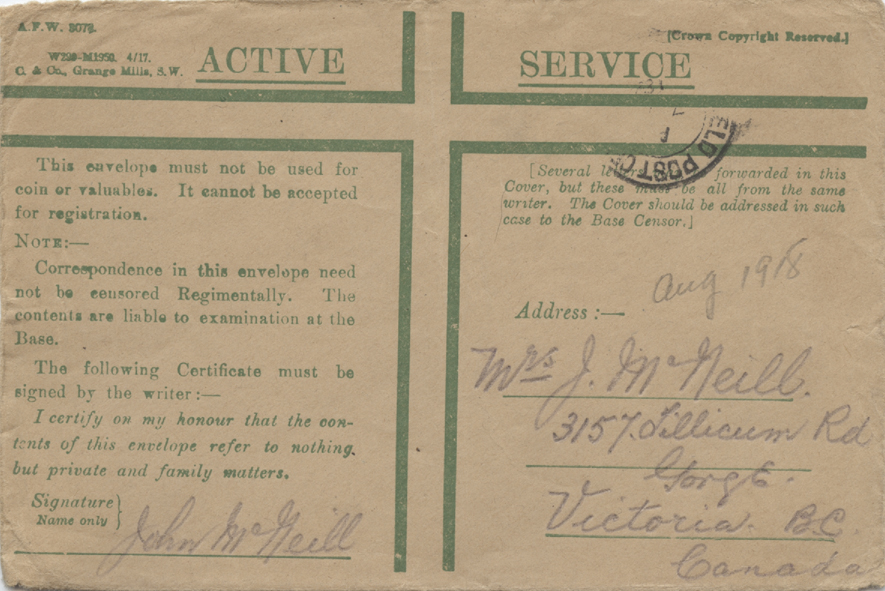 A.F.W. 3078.
[Crown Copyright Reserved.]
4/17.
C. & Co., Grange Mills, S.W.
ACTIVE SERVICE
This envelope must not be used for
coin or valuables. It cannot be accepted
for registration.
NOTE:—
Correspondence in this envelope need
not be censored Regimentally. The
contents are liable to examination at the
Base.
The following Certificate must be
signed by the writer:—
I certify on my honour that the con-
tents of this envelope refer to nothing
but private and family matters.
Signature
Name only
John McNeill
LD POST OF
[Several letters forwarded in this
Cover, but these must be all from the same
writer. The Cover should be addressed in such
case to the Base Censor.]
Aug 1918
Address:—
Mrs J. McNeill.
3157. Tillicum Rd
Gorge.
Victoria. B.C.
Canada